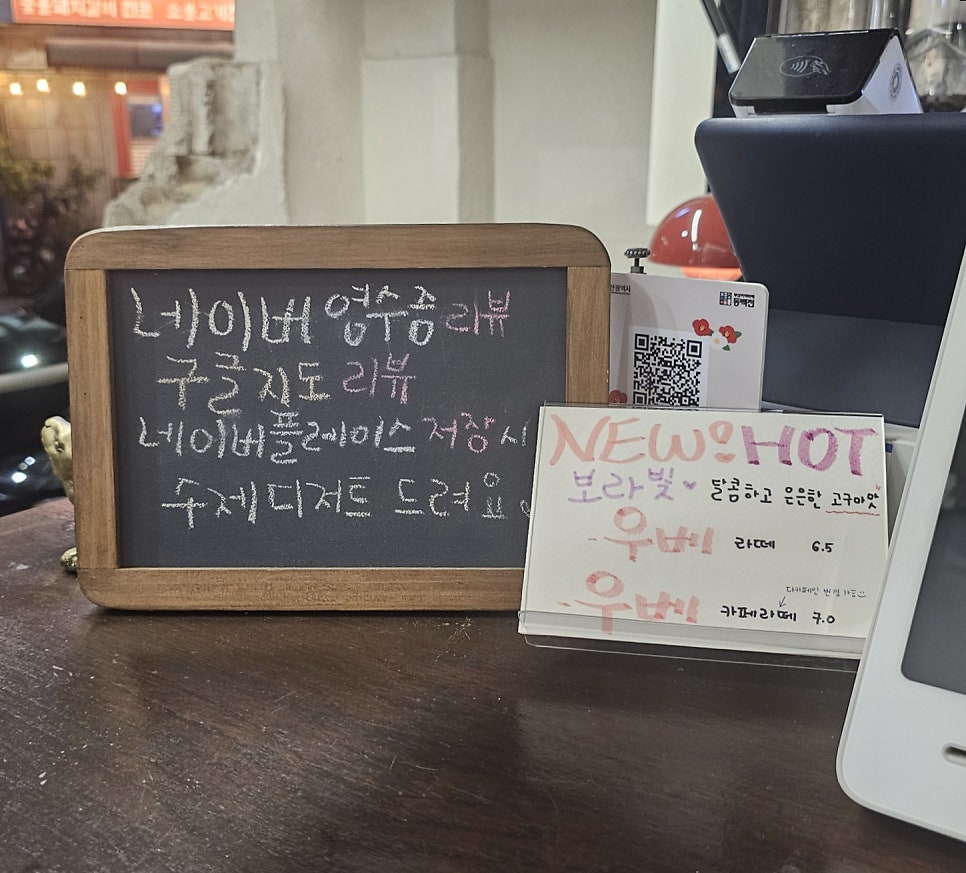 네이버 영수증 리뷰
구글지도 리뷰
네이버플레이스 저장시
수제디저트 드려요
동백전
NEW & HOT
보라빛 달콤하고 은은한 고구마맛
우베 라떼 6.5
디카페인 변경 가능
우베 카페라떼 7.0